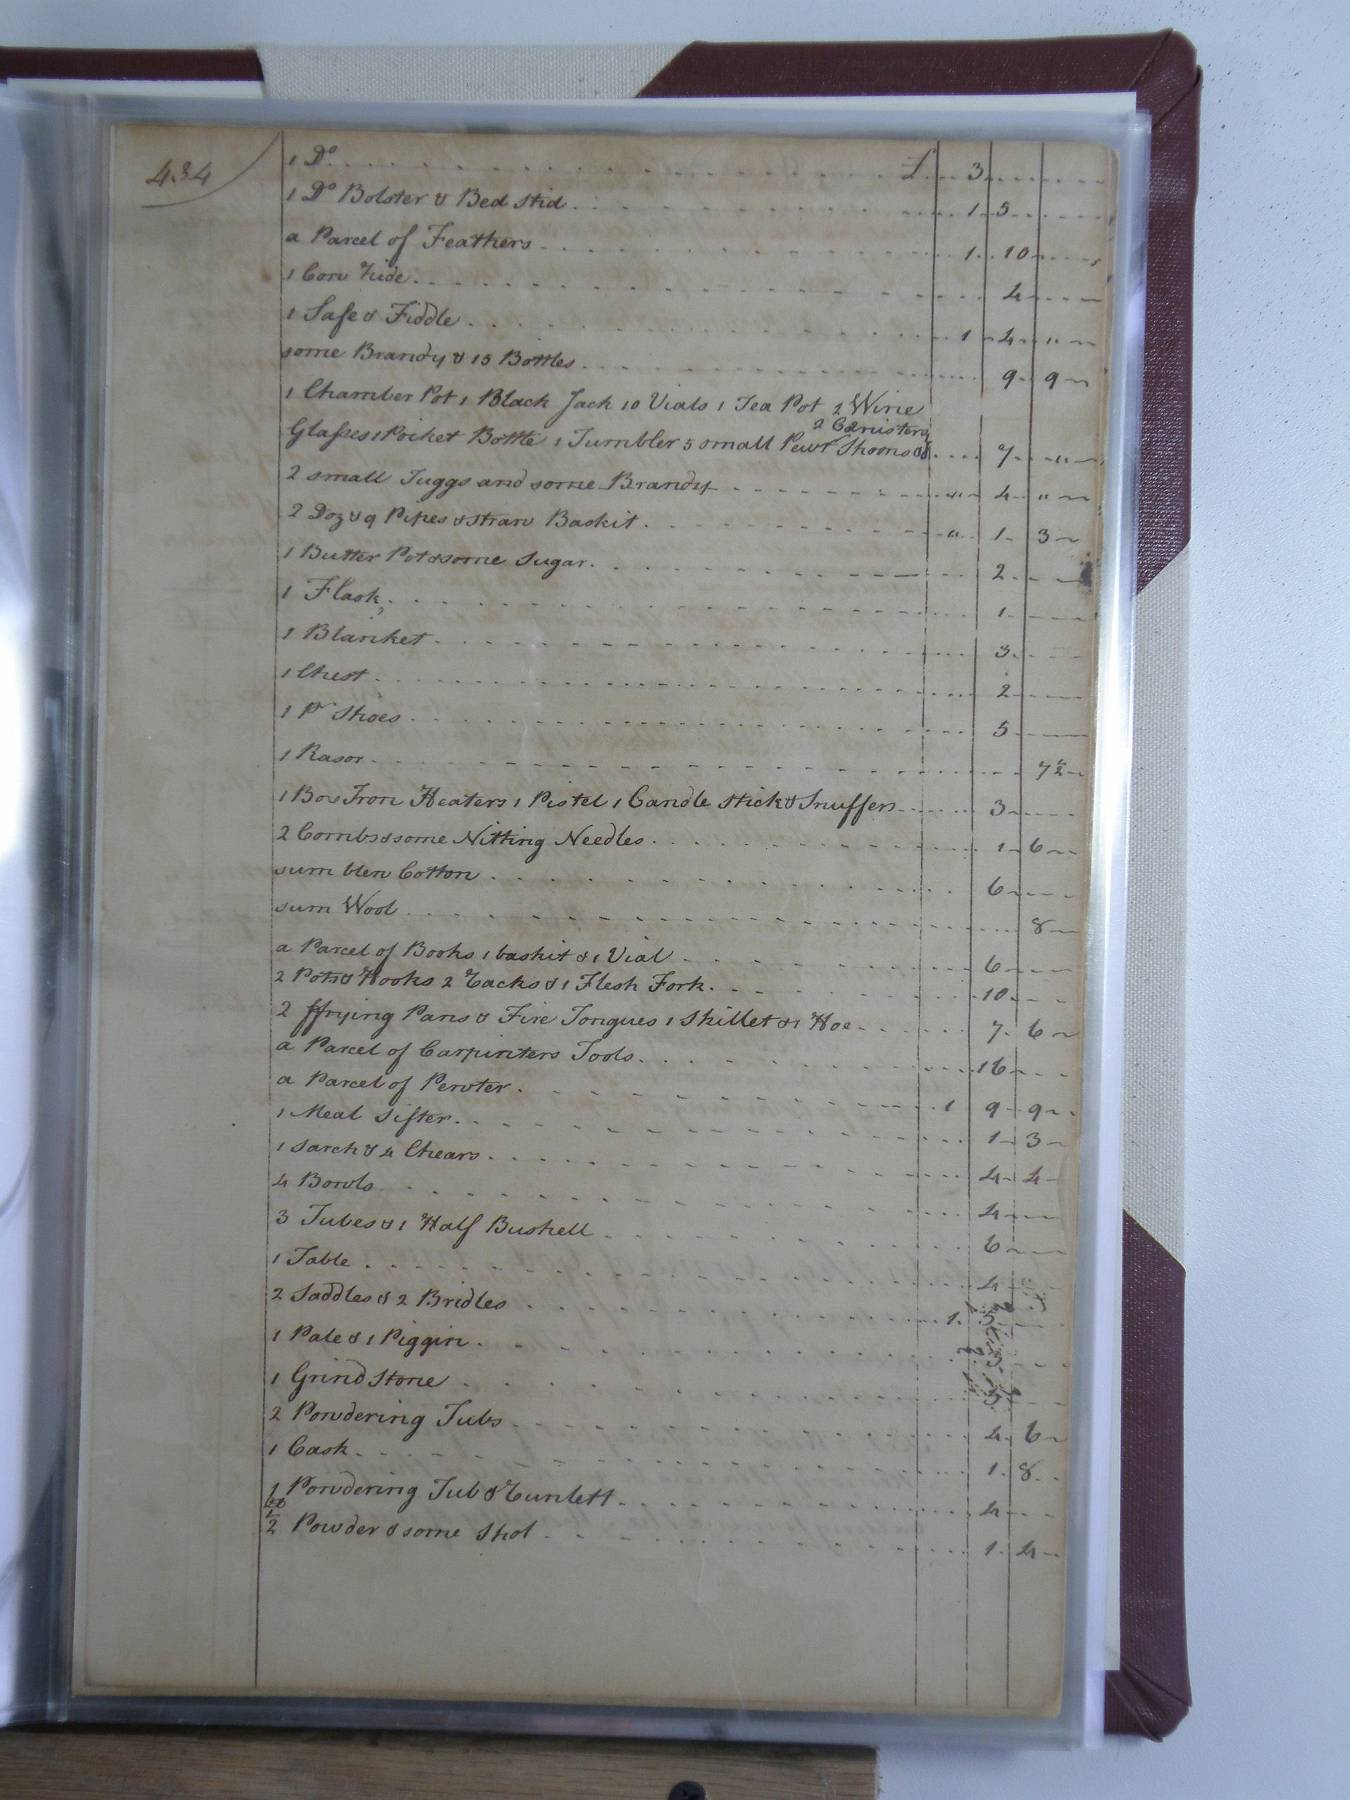 434
1 Do. £ 3
1 Do Bolster & Bed Stid 1 5
a Parcel of Feathers 1 10
1 Cow hide 4
1 Safe & Fiddle 1 4 "
some Brandy & 15 Bottles 9 9
1 Chamber Pot 1 Black Jack 10 Vials 1 Tea Pot 2 Wine
2 Canisters
Glasses 1 Pocket Bottle 1 Tumbler 5 small Pewr Spoons & 7 "
2 small Juggs and some Brandy " 4 "
2 Doz & 9 Pipes & straw Baskit " 1 3
1 Butter Pot & some Sugar 2
1 Flask 1
1 Blanket 3
1 Chest 2
1 Pr Shoes 5
1 Rasor 7½
1 Box Iron Heaters 1 Pistel 1 Candle stick & Snuffers 3
2 Combs & some Nitting Needles 1 6
sum blew Cotton 6
sum Wool 8
a Parcel of Books 1 baskit & 1 Vial 6
2 Pots & Hooks 2 Racks & 1 Flesh Fork 10
2 ffrying Pans & Fire Tongues 1 Skillet & 1 Hoe 7 6
a Parcel of Carpinters Tools 16
a Parcel of Pewter 1 9 9
1 Meal Sifter 1 3
1 sarch & 4 Chears 4 4
4 Bowls 4
3 Tubes & 1 Half Bushell 6
1 Table 4
2 Saddles & 2 Bridles 1
1 Pale & 1 Piggin
1 Grind Stone
2 Powdering Tubs 4 6
1 Cask 1 8
1 Powdering Tub & Runlett 4
½ Powder & some Shot 1 4